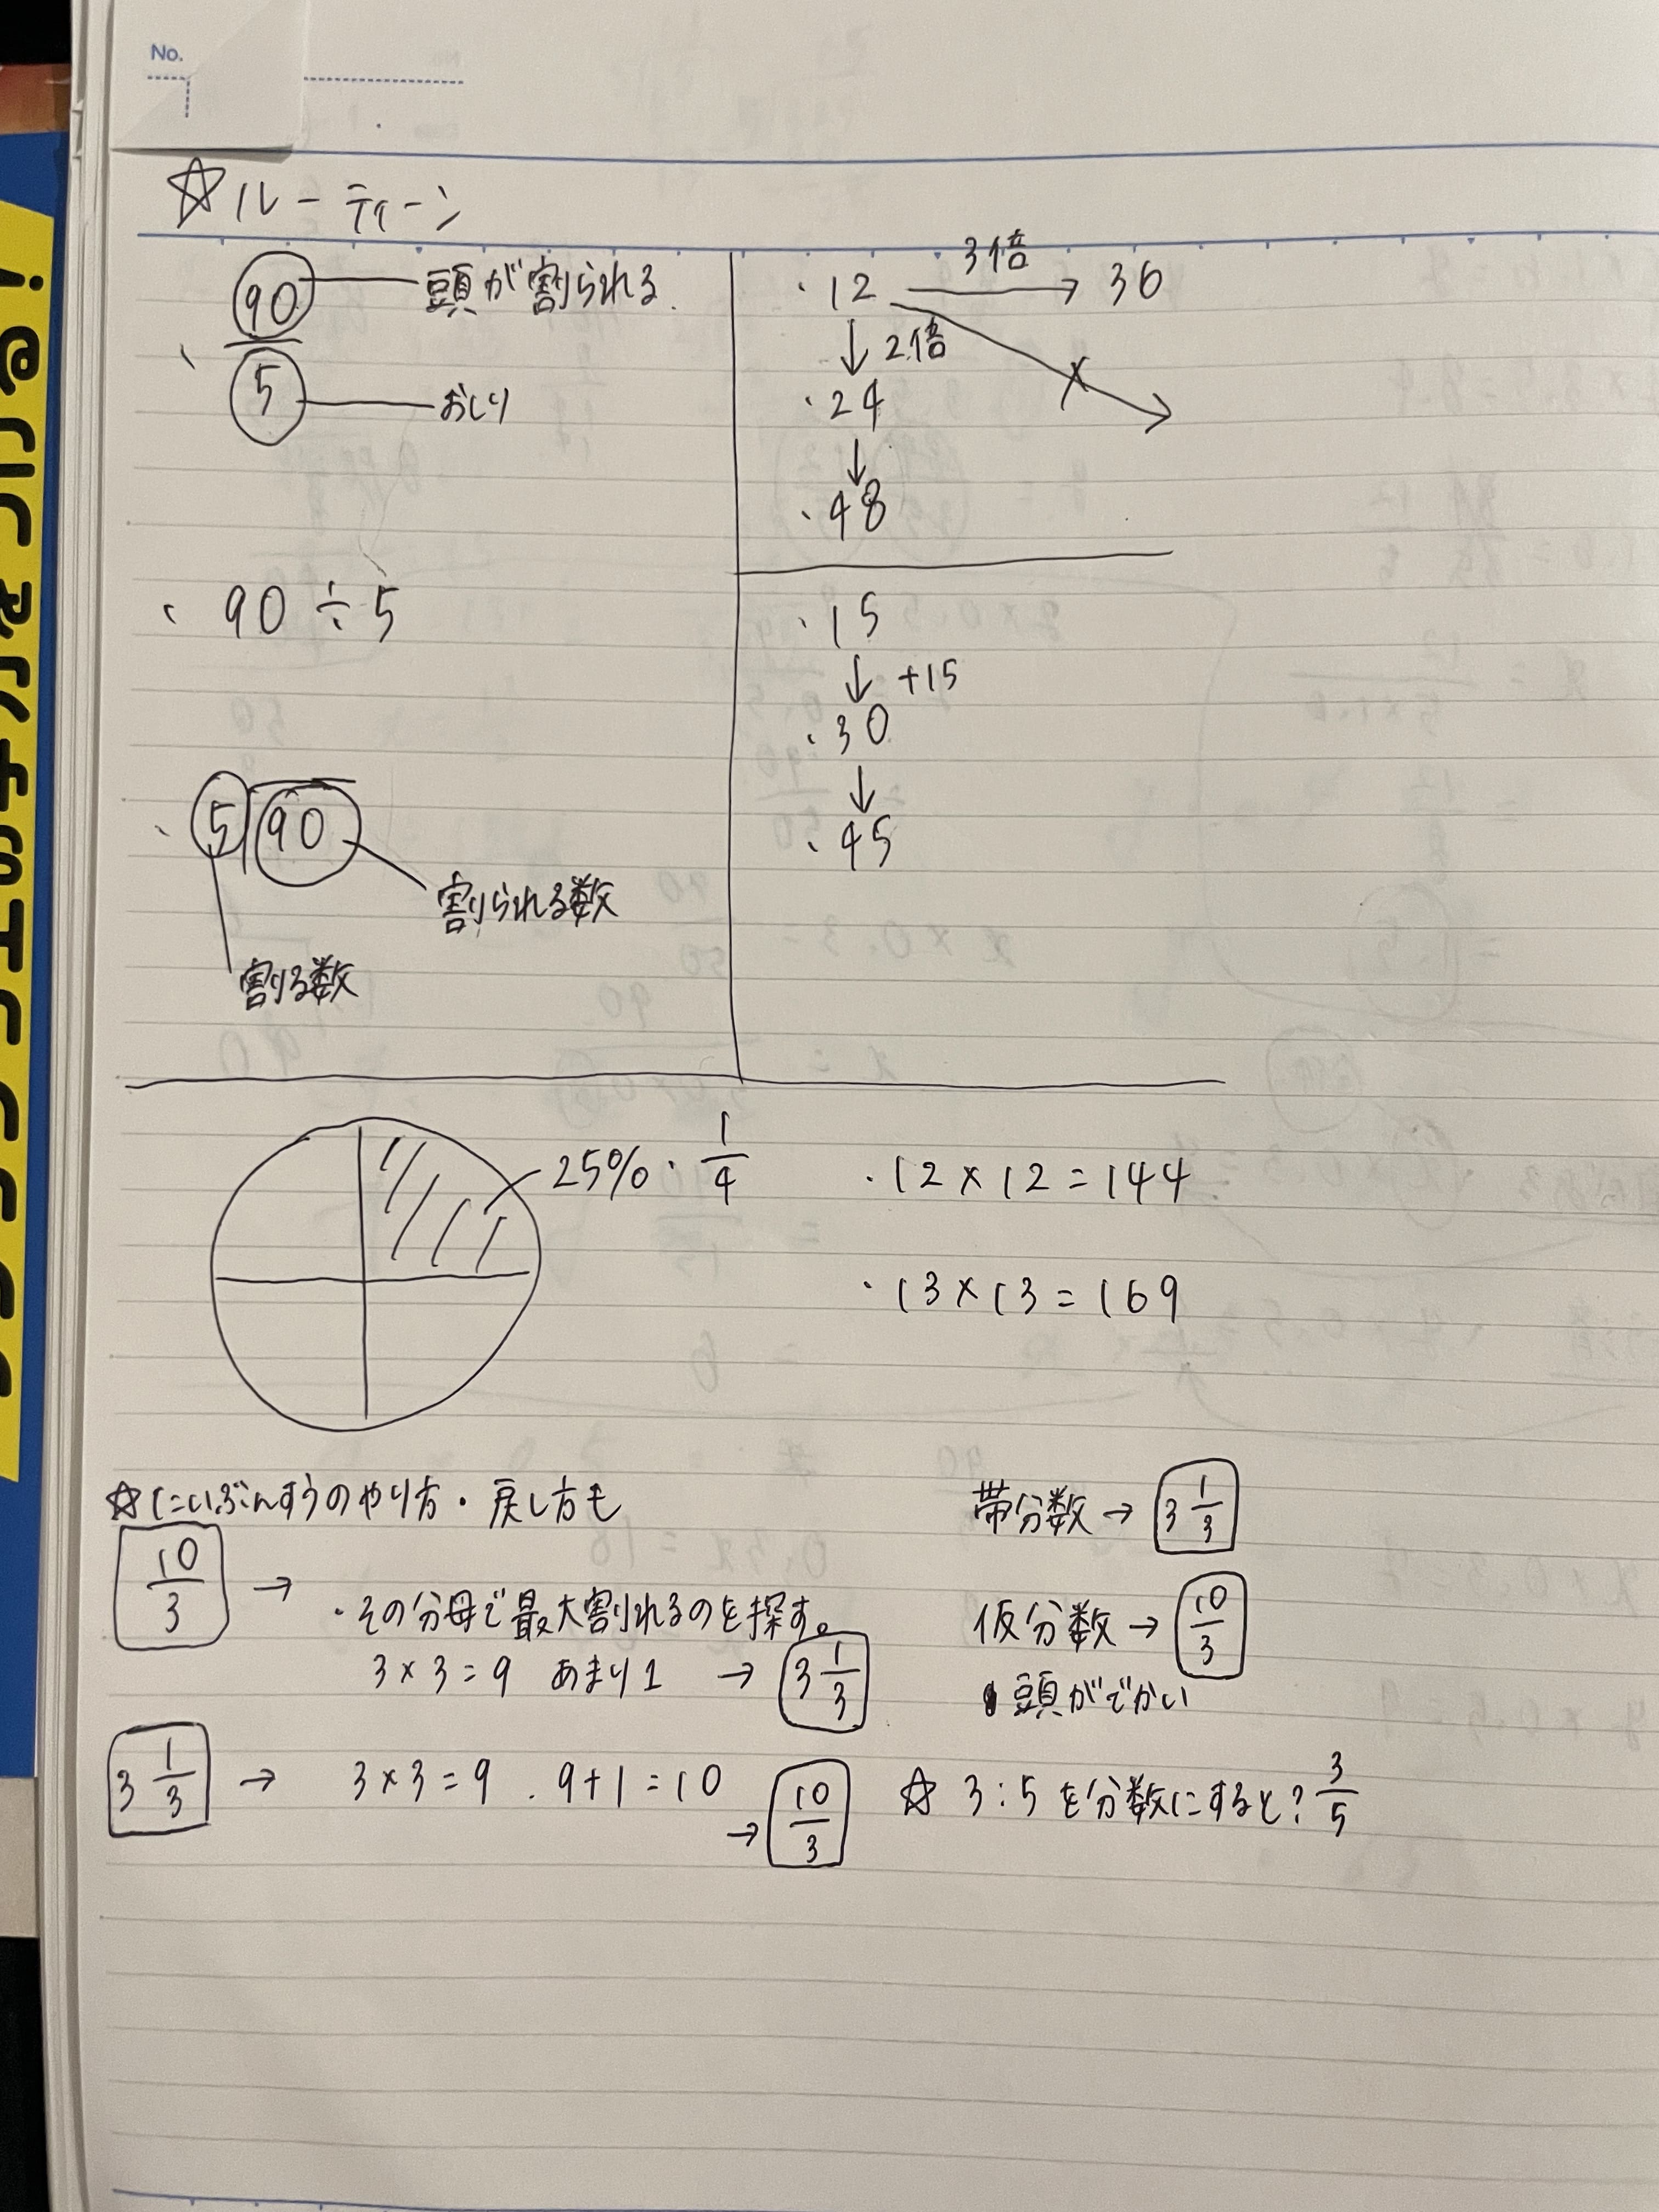 No.
☆ルーティーン
90 頭が割られる.
5 おしり
90÷5
5 90
割られる数
割る数
・12 3倍→ 36
↓2倍
・24 ×
↓
・48
・15
↓+15
・30
↓
・45
25%・1/4
・12×12=144
・13×13=169
☆たいぶんすうのやり方・戻し方も
10/3 → ・その分母で最大割れるのを探す。
3×3=9 あまり1 → 3 1/3
3 1/3 → 3×3=9 . 9+1=10
→ 10/3
帯分数→ 3 1/3
仮分数→ 10/3
頭がでかい
☆ 3:5を分数にすると? 3/5